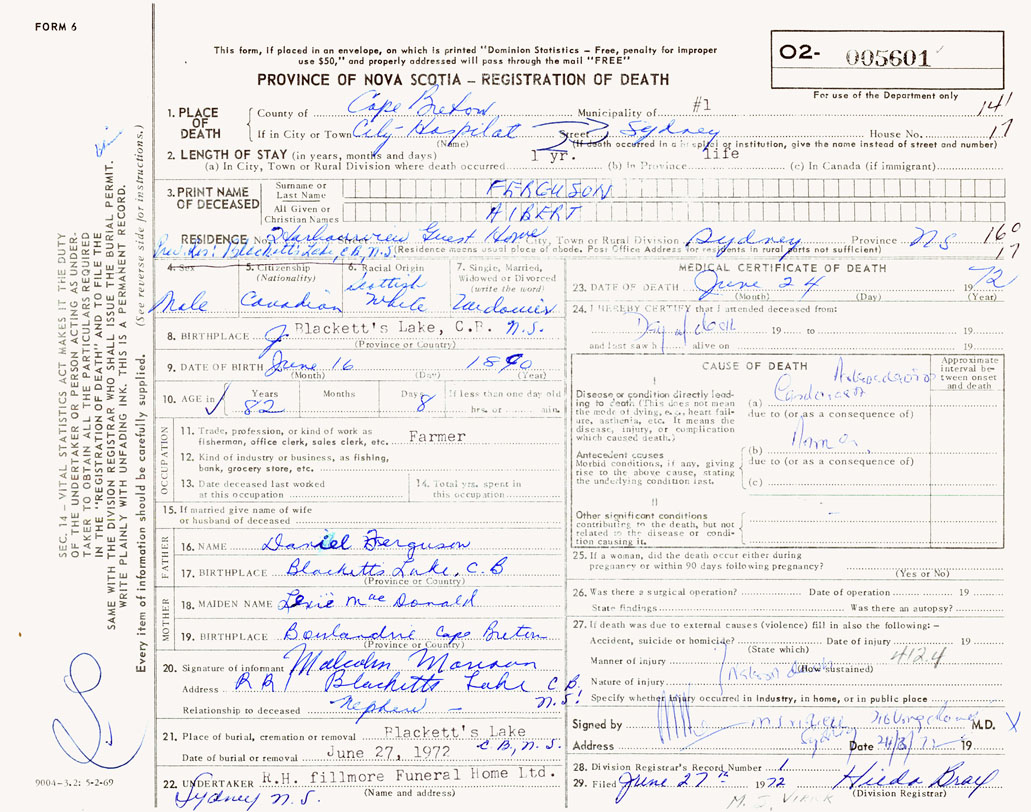 FORM 6
This form, if placed in an envelope, on which is printed "Dominion Statistics – Free, penalty for improper
use $50," and properly addressed will pass through the mail "FREE"
O2- 005601
PROVINCE OF NOVA SCOTIA – REGISTRATION OF DEATH
For use of the Department only
1. PLACE OF DEATH
County of Cape Breton Municipality of #1 141
If in City or Town City Hospital Street Sydney House No. 17
(Name) (If death occurred in a hospital or institution, give the name instead of street and number)
2. LENGTH OF STAY (in years, months and days) 1 yr. life
(a) In City, Town or Rural Division where death occurred (b) In Province (c) In Canada (if immigrant)
3. PRINT NAME OF DECEASED
Surname or Last Name FERGUSON
All Given or Christian Names AlBERT
RESIDENCE No. Harbourview Guest Home City, Town or Rural Division Sydney Province NS 160
Blacketts Lake, C.B., N.S. (Residence means usual place of abode. Post Office Address for residents in rural parts not sufficient) 17
4. Sex 5. Citizenship (Nationality) 6. Racial Origin 7. Single, Married, Widowed or Divorced (write the word)
Male Canadian Scottish White
8. BIRTHPLACE Blackett's Lake, C.B. N.S.
(Province or Country)
9. DATE OF BIRTH June 16 1890
(Month) (Day) (Year)
10. AGE in Years 82 Months Days 8 If less than one day old hrs. or min.
OCCUPATION
11. Trade, profession, or kind of work as fisherman, office clerk, sales clerk, etc. Farmer
12. Kind of industry or business, as fishing, bank, grocery store, etc.
13. Date deceased last worked at this occupation
14. Total yrs. spent in this occupation
15. If married give name of wife or husband of deceased
FATHER
16. NAME Daniel Ferguson
17. BIRTHPLACE Blacketts Lake, C.B
(Province or Country)
MOTHER
18. MAIDEN NAME Lexie MacDonald
19. BIRTHPLACE Boulardrie Cape Breton
(Province or Country)
20. Signature of informant Malcolm Morrison
Address RR1 Blacketts Lake C.B. N.S.
Relationship to deceased Nephew –
21. Place of burial, cremation or removal Blackett's Lake C.B, N.S.
Date of burial or removal June 27, 1972
22. UNDERTAKER R.H. fillmore Funeral Home Ltd.
Sydney N.S. (Name and address)
MEDICAL CERTIFICATE OF DEATH
23. DATE OF DEATH June 24 1972
(Month) (Day) (Year)
24. I HEREBY CERTIFY that I attended deceased from:
Day of death 19 to 19
and last saw h alive on 19
CAUSE OF DEATH
Approximate interval between onset and death
I
Disease or condition directly leading to death (This does not mean the mode of dying, e.g. heart failure, asthenia, etc. It means the disease, injury, or complication which caused death.)
(a)
due to (or as a consequence of)
Antecedent causes
Morbid conditions, if any, giving rise to the above cause, stating the underlying condition last.
(b)
due to (or as a consequence of)
(c)
II
Other significant conditions contributing to the death, but not related to the disease or condition causing it.
25. If a woman, did the death occur either during pregnancy or within 90 days following pregnancy?
(Yes or No)
26. Was there a surgical operation? Date of operation 19
State findings Was there an autopsy?
27. If death was due to external causes (violence) fill in also the following: –
Accident, suicide or homicide? Date of injury 19
(State which)
Manner of injury (How sustained) 4124
Nature of injury
Specify whether injury occurred in industry, in home, or in public place
Signed by M.D. X
Address Sydney Date 19
28. Division Registrar's Record Number 1
29. Filed June 27th 1972 Hilda Bray
(Division Registrar)
SEC. 14 – VITAL STATISTICS ACT MAKES IT THE DUTY
OF THE UNDERTAKER OR PERSON ACTING AS UNDER-
TAKER TO OBTAIN ALL THE PARTICULARS REQUIRED
IN THE "REGISTRATION OF DEATH" AND TO FILE THE
SAME WITH THE DIVISION REGISTRAR WHO SHALL ISSUE THE BURIAL PERMIT.
WRITE PLAINLY WITH UNFADING INK. THIS IS A PERMANENT RECORD.
Every item of information should be carefully supplied. (See reverse side for instructions.)
9004-3.2: 5-2-69